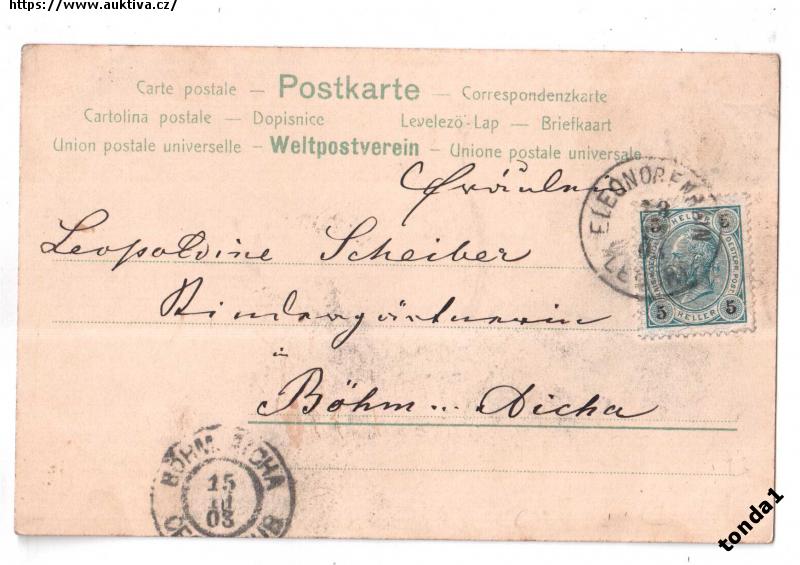 https://www.auktiva.cz/
Carte postale — Postkarte — Correspondenzkarte
Cartolina postale — Dopisnice Levelezö-Lap — Briefkaart
Union postale universelle — Weltpostverein — Unione postale universale
Fräulein
Leopoldine Scheiber
Kindergärtnerin
in
Böhm. Aicha
ELEONOREN
5 HELLER 5
5 HELLER 5
BÖHM. AICHA
15
03
tonda1